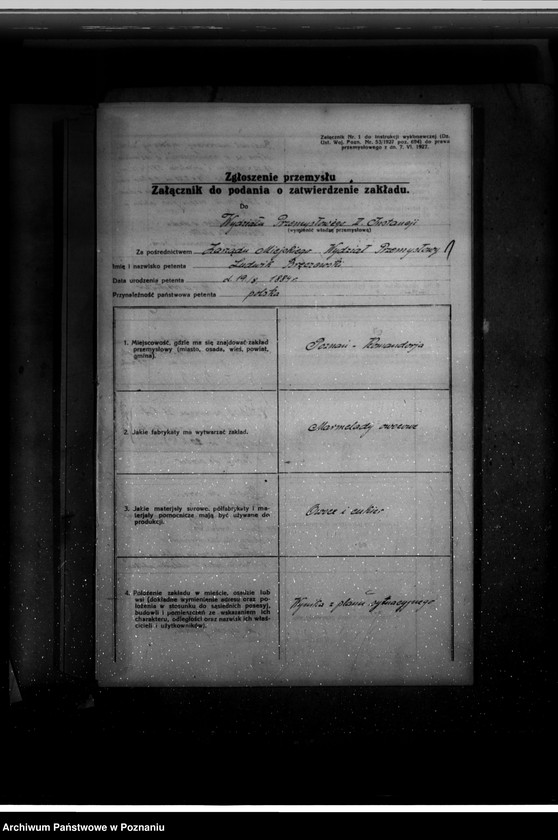 Załącznik Nr. 1 do Instrukcji wykonawczej (Dz.
Ust. Woj. Pozn. Nr. 53/1927 poz. 694) do prawa
przemysłowego z dn. 7. VI. 1927.
Zgłoszenie przemysłu
Załącznik do podania o zatwierdzenie zakładu.
Do
Wydziału Przemysłowego II. Instancji
(wymienić władzę przemysłową)
Za pośrednictwem Zarządu Miejskiego Wydział Przemysłowy
Imię i nazwisko petenta Ludwik
Data urodzenia petenta d. 19. 1884 r.
Przynależność państwowa petenta polska
1. Miejscowość, gdzie ma się znajdować zakład
przemysłowy (miasto, osada, wieś, powiat,
gmina).
Poznań - Komandorja
2. Jakie fabrykaty ma wytwarzać zakład.
Marmelady owocowe
3. Jakie materjały surowe, półfabrykaty i ma-
terjały pomocnicze mają być używane do
produkcji.
Owoce i cukier
4. Położenie zakładu w mieście, osadzie lub
wsi (dokładne wymienienie adresu oraz po-
łożenia w stosunku do sąsiednich posesyj,
budowli i pomieszczeń ze wskazaniem ich
charakteru, odległości oraz nazwisk ich właś-
cicieli i użytkowników).
Wynika z planu sytuacyjnego
Archiwum Państwowe w Poznaniu